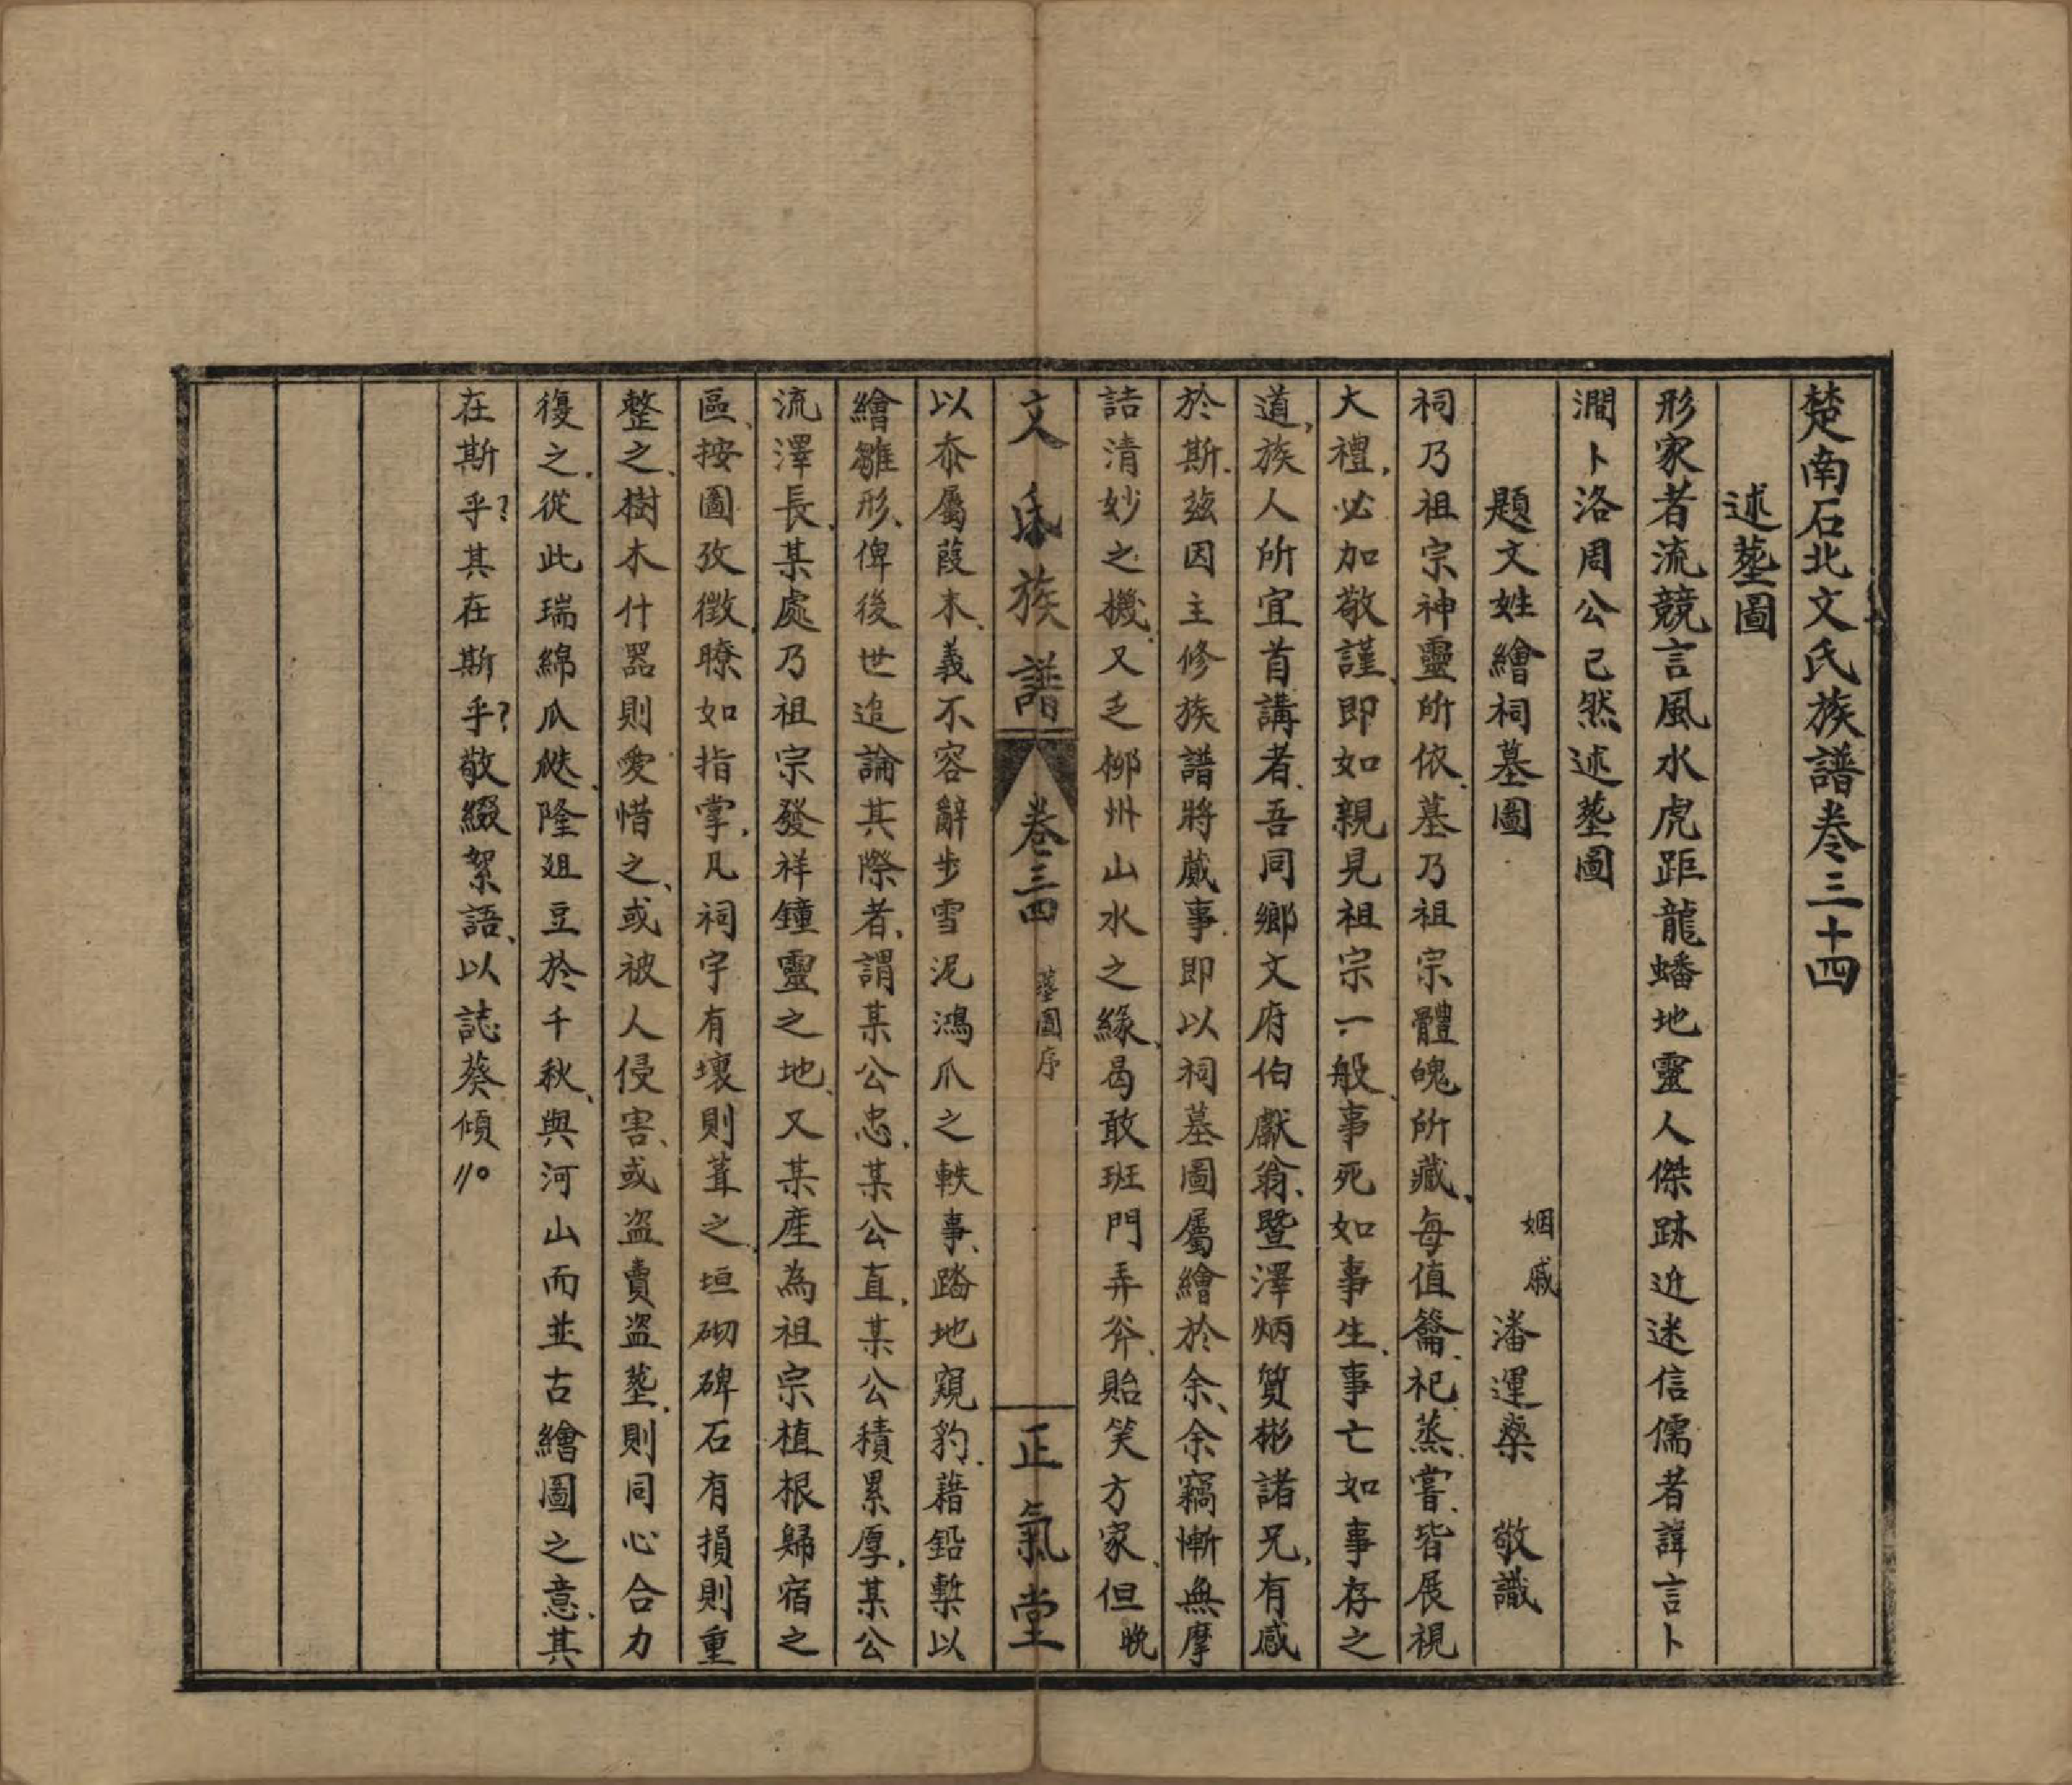 楚南石北文氏族譜卷三十四
述塋圖
形家者流競言風水虎距龍蟠地靈人傑跡近迷信儒者諱言卜
澗卜洛周公已然述塋圖
題文姓繪祠墓圖
姻戚 潘運藥 敬識
祠乃祖宗神靈所依、墓乃祖宗體魄所藏、每值籥祀蒸嘗、皆展視
大禮、必加敬謹、即如親見祖宗一般、事死如事生、事亡如事存之
道、族人所宜首講者、吾同鄉文府伯獻翁、暨澤炳質彬諸兄、有感
於斯、茲因主修族譜將蕆事、即以祠墓圖屬繪於余、余竊慚無摩
詰清妙之機、又乏柳州山水之緣、曷敢班門弄斧、貽笑方家、但晚
文氏族譜 卷三四 塋圖序 正氣堂
以忝屬葭末、義不容辭步雪泥鴻爪之軼事、踏地窺豹、藉鉛槧以
繪雛形、俾後世追論其際者、謂某公忠、某公直、某公積累厚、某公
流澤長、某處乃祖宗發祥鐘靈之地、又某産為祖宗植根歸宿之
區、按圖攷徵、瞭如指掌、凡祠宇有壞則葺之、垣砌碑石有損則重
整之、樹木什器則愛惜之、或被人侵害、或盜賣盜塋、則同心合力
復之、從此瑞綿瓜瓞、隆俎豆於千秋、與河山而並古繪圖之意、其
在斯乎?其在斯乎?敬綴絮語、以誌葵傾〃。